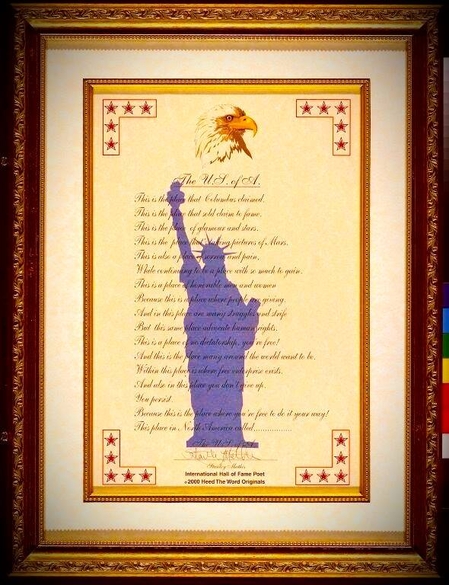 The U.S. of A.
This is the place that Columbus claimed,
This is the place that sold claim to fame,
This is the place of glamour and stars,
This is the place pictures of Mars,
This is also a place sorrow and pain,
While continuing to a place with so much to gain.
This is a place honorable men and women
Because this is a place where people giving
And in this place are many struggles and strife
But this same place advocate human rights,
This is a place no dictatorship, you're free!
And this is the place many around the world want to be.
Within this place is where free enterprise exists.
And also in this place you don't give up,
You persist.
Because this is the place where you're free to do it your way!
This place in North America called................
The U.S. of A.
Stanley
International Hall of Fame Poet
©2000 Heed The Word Originals